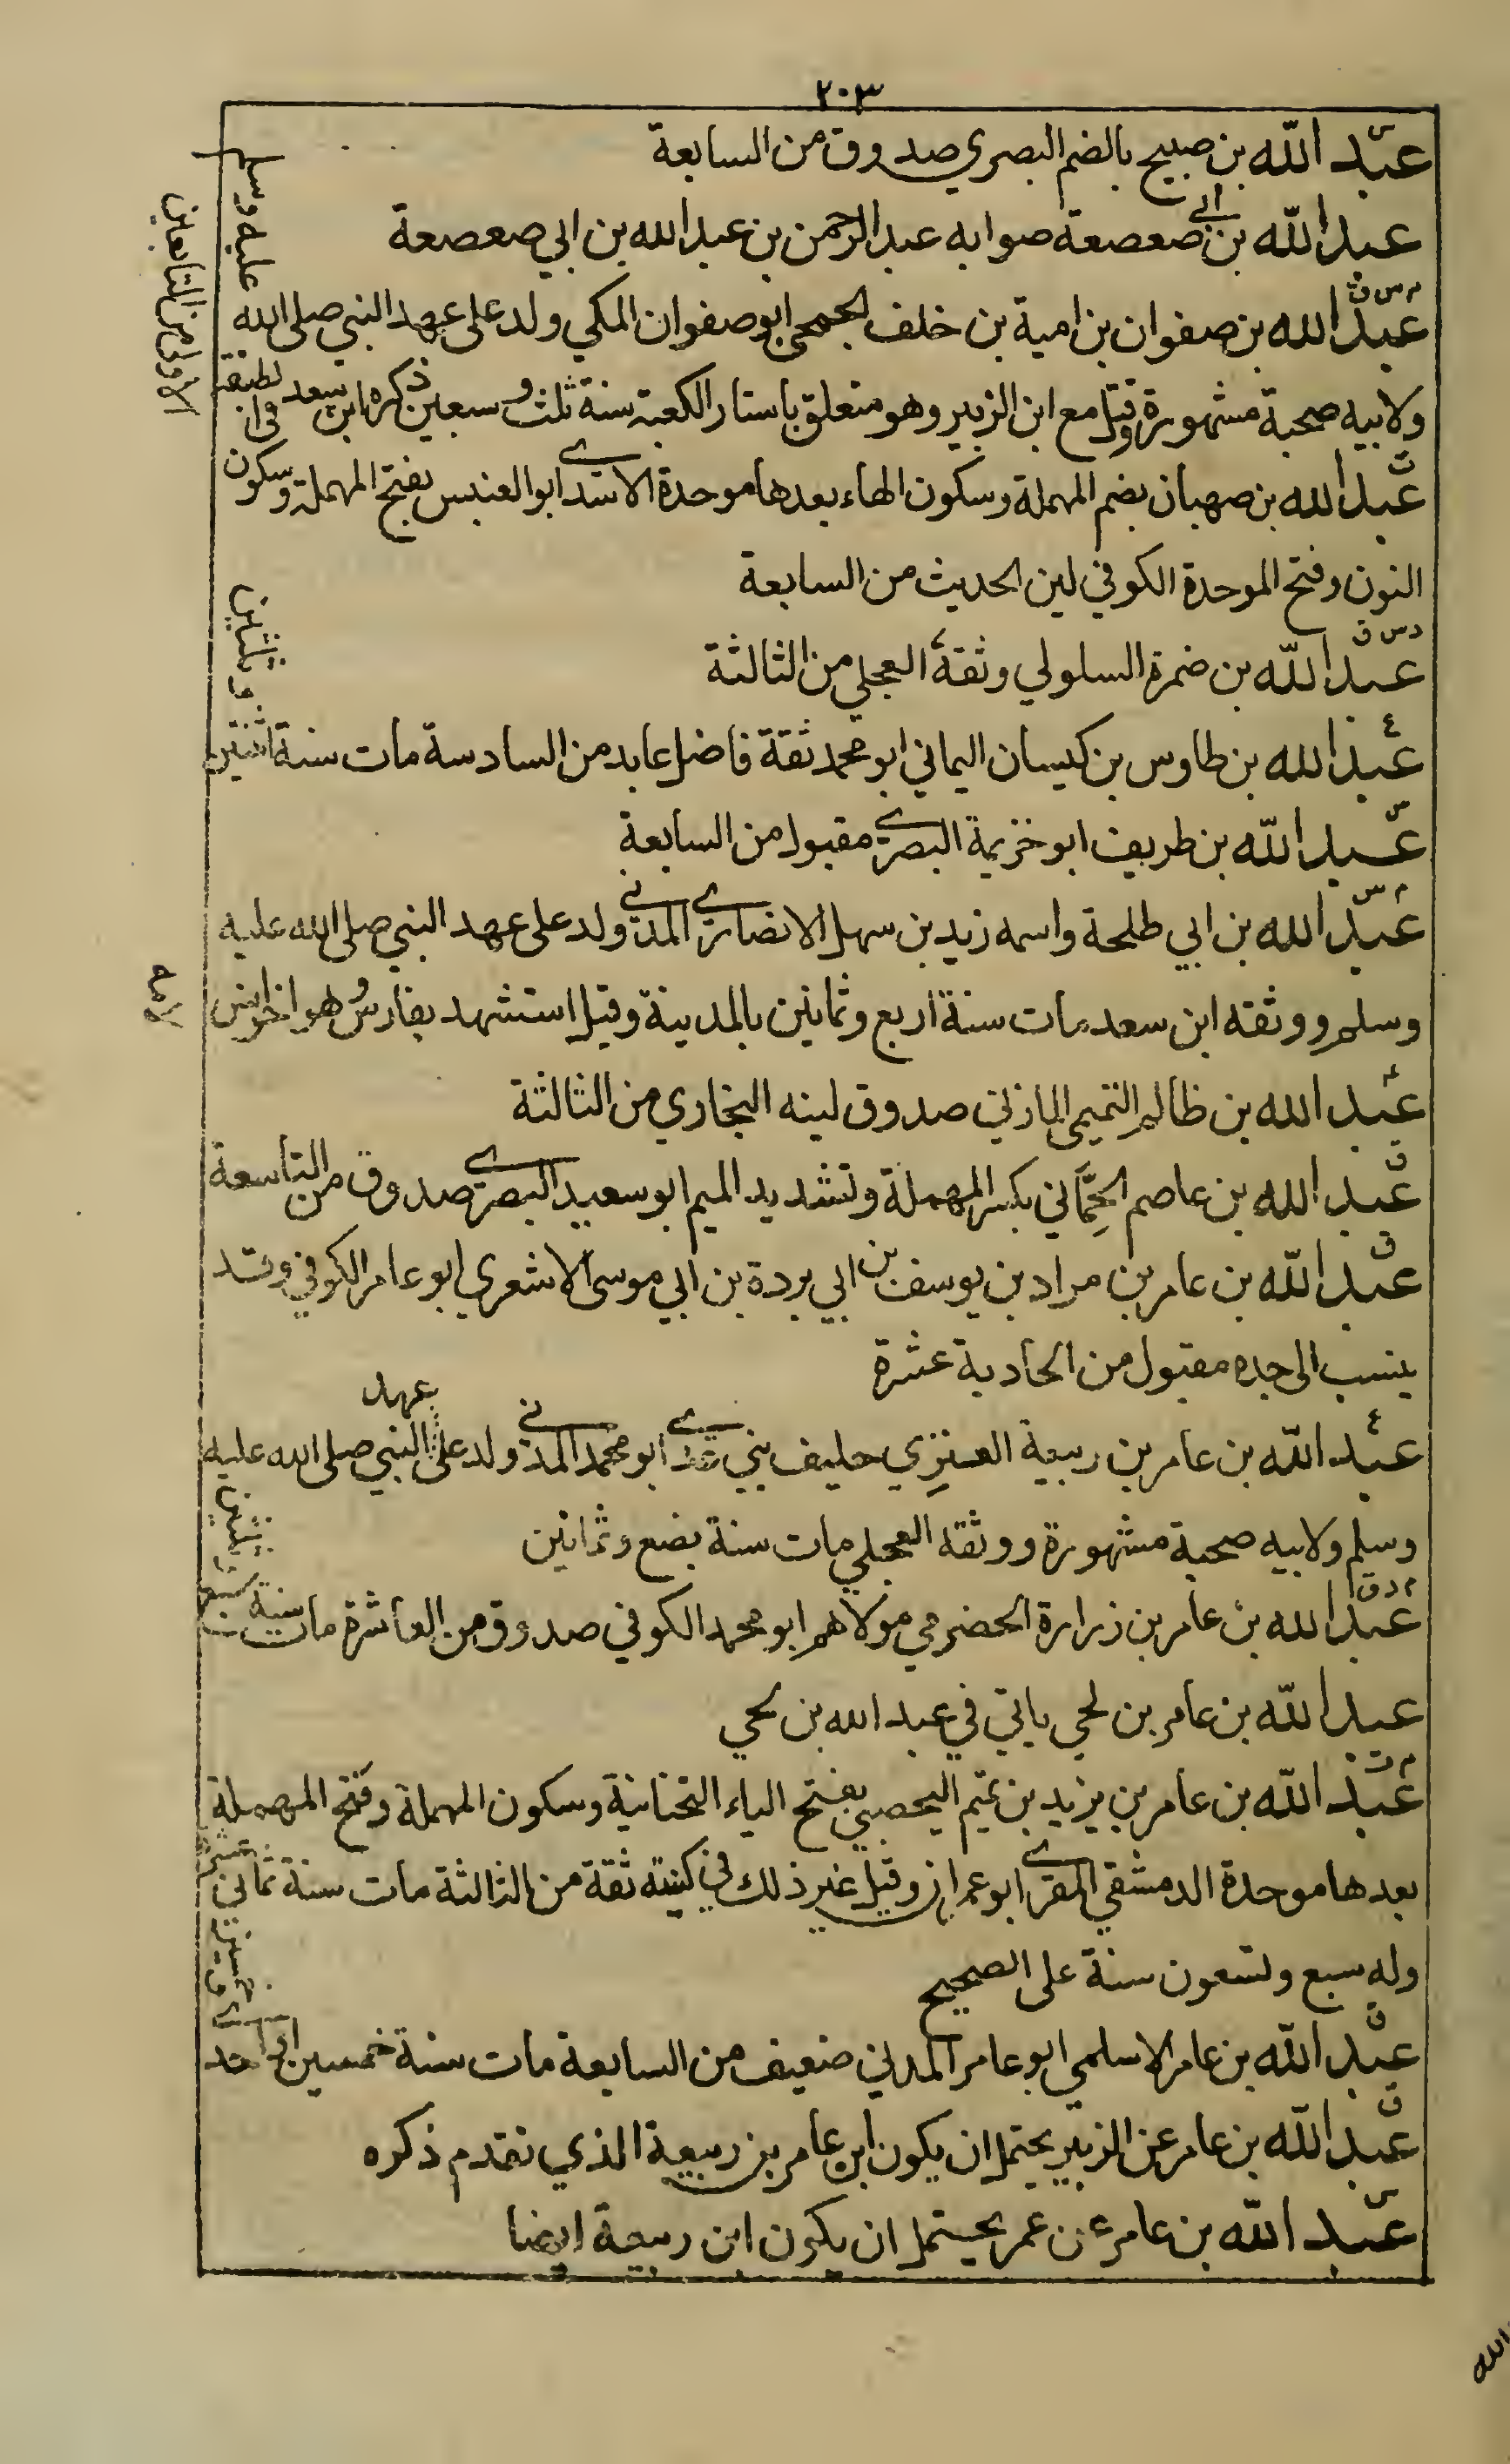 ٢٠٣
س
عبد الله بن صبيح بالضم البصري صدوق من السابعة
عبد الله بن ابي صعصعة صوابه عبد الرحمن بن عبد الله بن ابي صعصعة
م س ق
عبد الله بن صفوان بن امية بن خلف الجمحي ابو صفوان المكي ولد على عهد النبي صلى الله عليه وسلم
ولابيه صحبة مشهورة وقتل مع ابن الزبير وهو متعلق باستار الكعبة سنة ثلث وسبعين ذكره ابن سعد في الطبقة الاولى من التابعين
ت
عبد الله بن صهبان بضم المهملة وسكون الهاء بعدها موحدة الاسدي ابو العنبس بفتح المهملة وسكون
النون وفتح الموحدة الكوفي لين الحديث من السابعة
د س ق
عبد الله بن ضمرة السلولي وثقة العجلي من الثالثة
٤
عبد الله بن طاوس بن كيسان اليماني ابو محمد ثقة فاضل عابد من السادسة مات سنة اثنتين وثلثين
س
عبد الله بن طريف ابو خزيمة البصري مقبول من السابعة
م س
عبد الله بن ابي طلحة واسمه زيد بن سهل الانصاري المدني ولد على عهد النبي صلى الله عليه
وسلم ووثقه ابن سعد مات سنة اربع وثمانين بالمدينة وقيل استشهد بفارس وهو اخو انس لامه
٤
عبد الله بن ظالم التميمي المازني صدوق لينه البخاري من الثالثة
ق
عبد الله بن عاصم الحِمَّاني بكسر المهملة وتشديد الميم ابو سعيد البصري صدوق من التاسعة
ق
عبد الله بن عامر بن مراد بن يوسف بن ابي بردة بن ابي موسى الاشعري ابو عامر الكوفي وقد
ينسب الى جده مقبول من الحادية عشرة
٤
عبد الله بن عامر بن ربيعة العنزي حليف بني عدي ابو محمد المدني ولد على عهد النبي صلى الله عليه
وسلم ولابيه صحبة مشهورة ووثقه العجلي مات سنة بضع وثمانين
م د ق
عبد الله بن عامر بن زرارة الحضرمي مولاهم ابو محمد الكوفي صدوق من العاشرة مات سنة سبع وثلثين
عبد الله بن عامر بن لحي ياتي في عبد الله بن لحي
م ت
عبد الله بن عامر بن يزيد بن تميم اليحصبي بفتح الياء التحتانية وسكون المهملة وفتح المهملة
بعدها موحدة الدمشقي المقري ابو عمران وقيل غير ذلك في كنيته ثقة من الثالثة مات سنة ثماني عشرة
وله سبع وتسعون سنة على الصحيح
ق
عبد الله بن عامر الاسلمي ابو عامر المدني ضعيف من السابعة مات سنة خمسين او احدى وخمسين
ق
عبد الله بن عامر عن الزبير يحتمل ان يكون ابن عامر بن ربيعة الذي تقدم ذكره
س
عبد الله بن عامر عن عمر يحتمل ان يكون ابن ربيعة ايضا